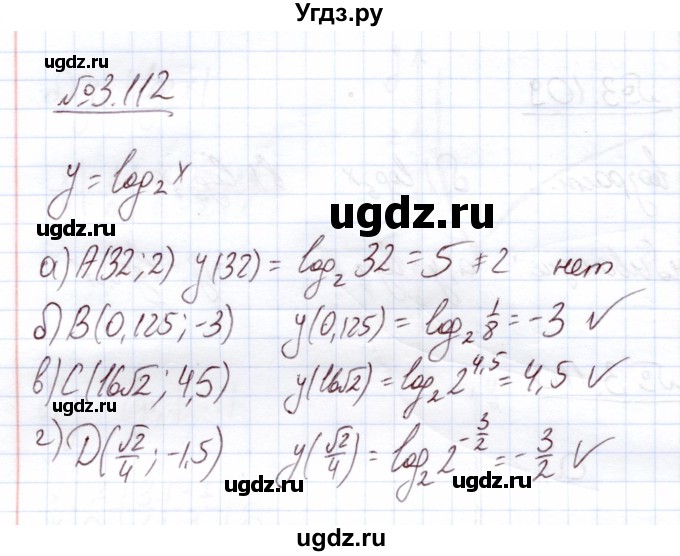 Угдз.ру
ugdz.ru ugdz.ru
№3.112
y = log₂x
ugdz.ru
ugdz.ru
а) A(32; 2) y(32) = log₂ 32 = 5 ≠ 2 нет
б) B(0,125; -3) y(0,125) = log₂ 1/8 = -3 ✓
в) C(16√2; 4,5) y(16√2) = log₂ 2^4,5 = 4,5 ✓
г) D(√2/4; -1,5) y(√2/4) = log₂ 2^(-3/2) = -3/2 ✓
ugdz.ru ugdz.ru
ugdz.ru